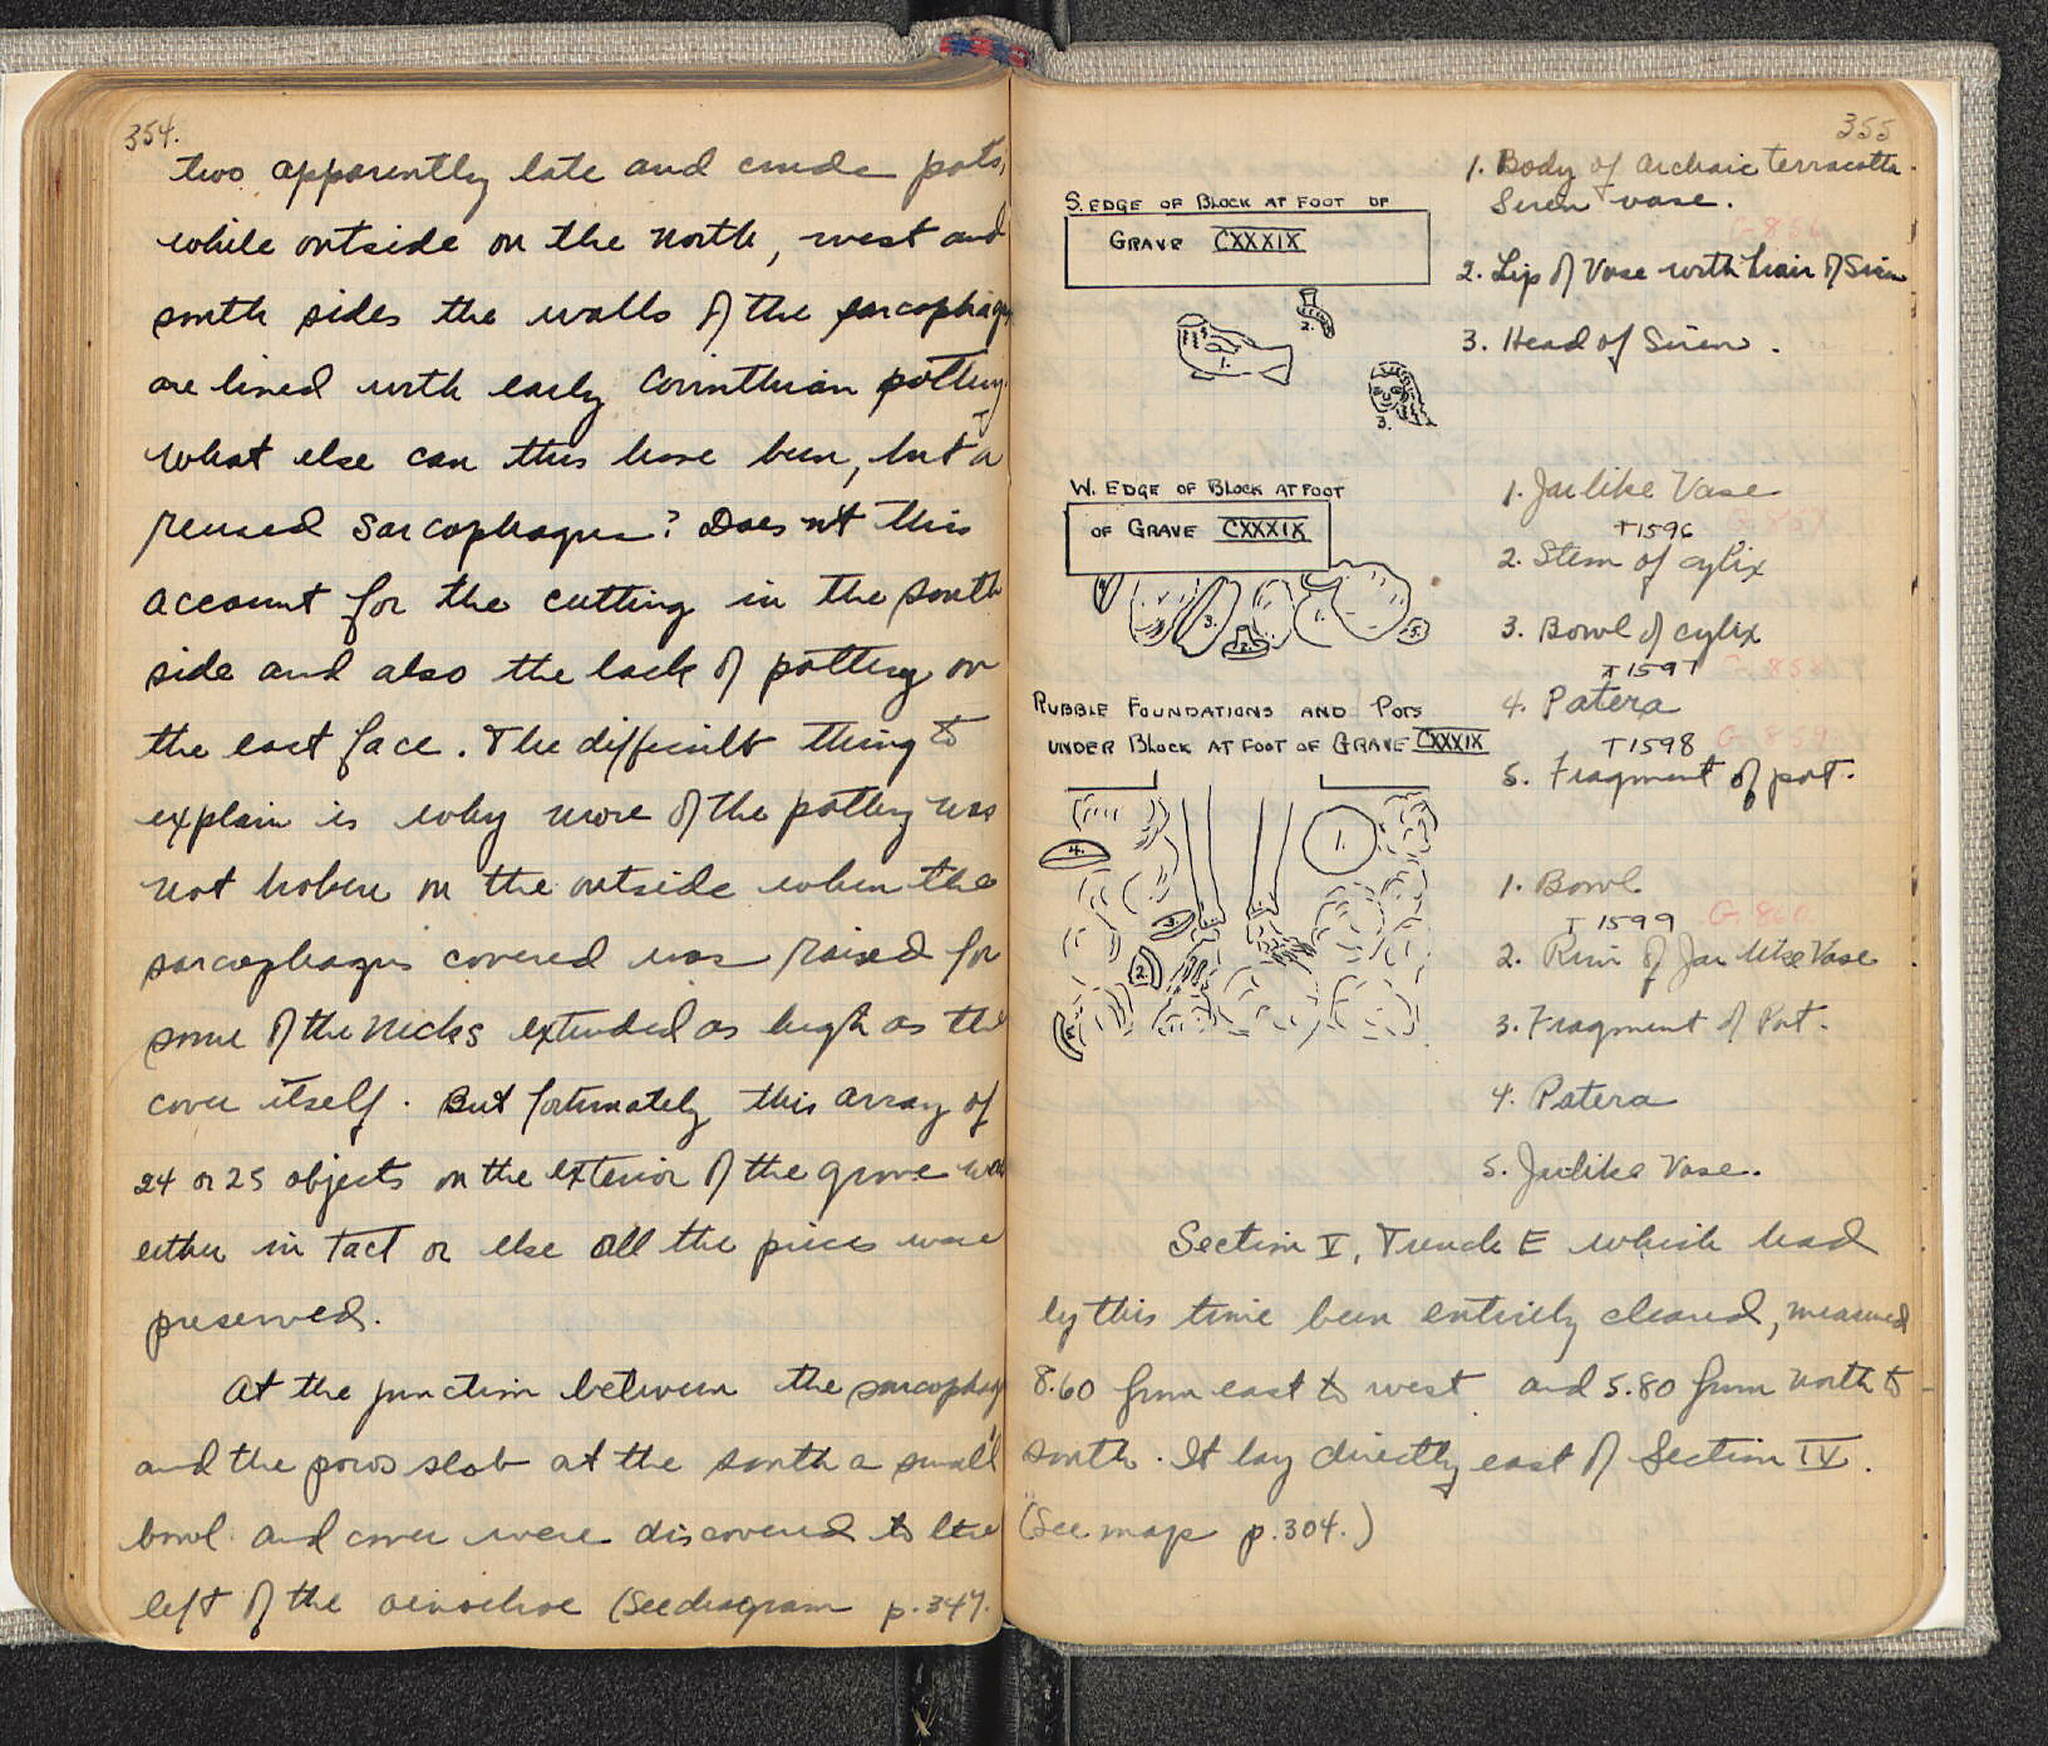 354.
two apparently late and crude pots,
while outside on the north, west and
south sides the walls of the sarcophagus
are lined with early Corinthian pottery.
What else can this have been, but a
reused sarcophagus? Does n't this
account for the cutting in the south
side and also the lack of pottery on
the east face. The difficult thing to
explain is why more of the pottery was
not broken on the outside when the
sarcophagus covered was raised for
some of the necks extended as high as the
cover itself. But fortunately this array of
24 or 25 objects on the exterior of the grave was
either in tact or else all the pieces were
preserved.
At the junction between the sarcophag
and the poros slab at the south a small
bowl and cover were discovered to the
left of the oinochoe (See diagram p. 347.
355
S. EDGE OF BLOCK AT FOOT OF
GRAVE CXXXIX
1.
2.
3.
1. Body of archaic terracotta
Siren vase.
G 856
2. Lip of Vase with hair of Siren
3. Head of Siren.
W. EDGE OF BLOCK AT FOOT
OF GRAVE CXXXIX
4.
3.
2.
1.
5.
1. Jarlike Vase
T1596 G 857
2. Stem of cylix
3. Bowl of cylix
T1597 G 858
4. Patera
T1598 G 859
5. Fragment of pot.
RUBBLE FOUNDATIONS AND POTS
UNDER BLOCK AT FOOT OF GRAVE CXXXIX
1.
4.
3.
2.
1. Bowl
T 1599 G 860
2. Rim of Jar like Vase
3. Fragment of Pot.
4. Patera
5. Jarlike Vase.
Section V, Trench E which had
by this time been entirely cleared, measured
8.60 from east to west and 5.80 from north to
south. It lay directly east of Section IV.
(See map p. 304.)